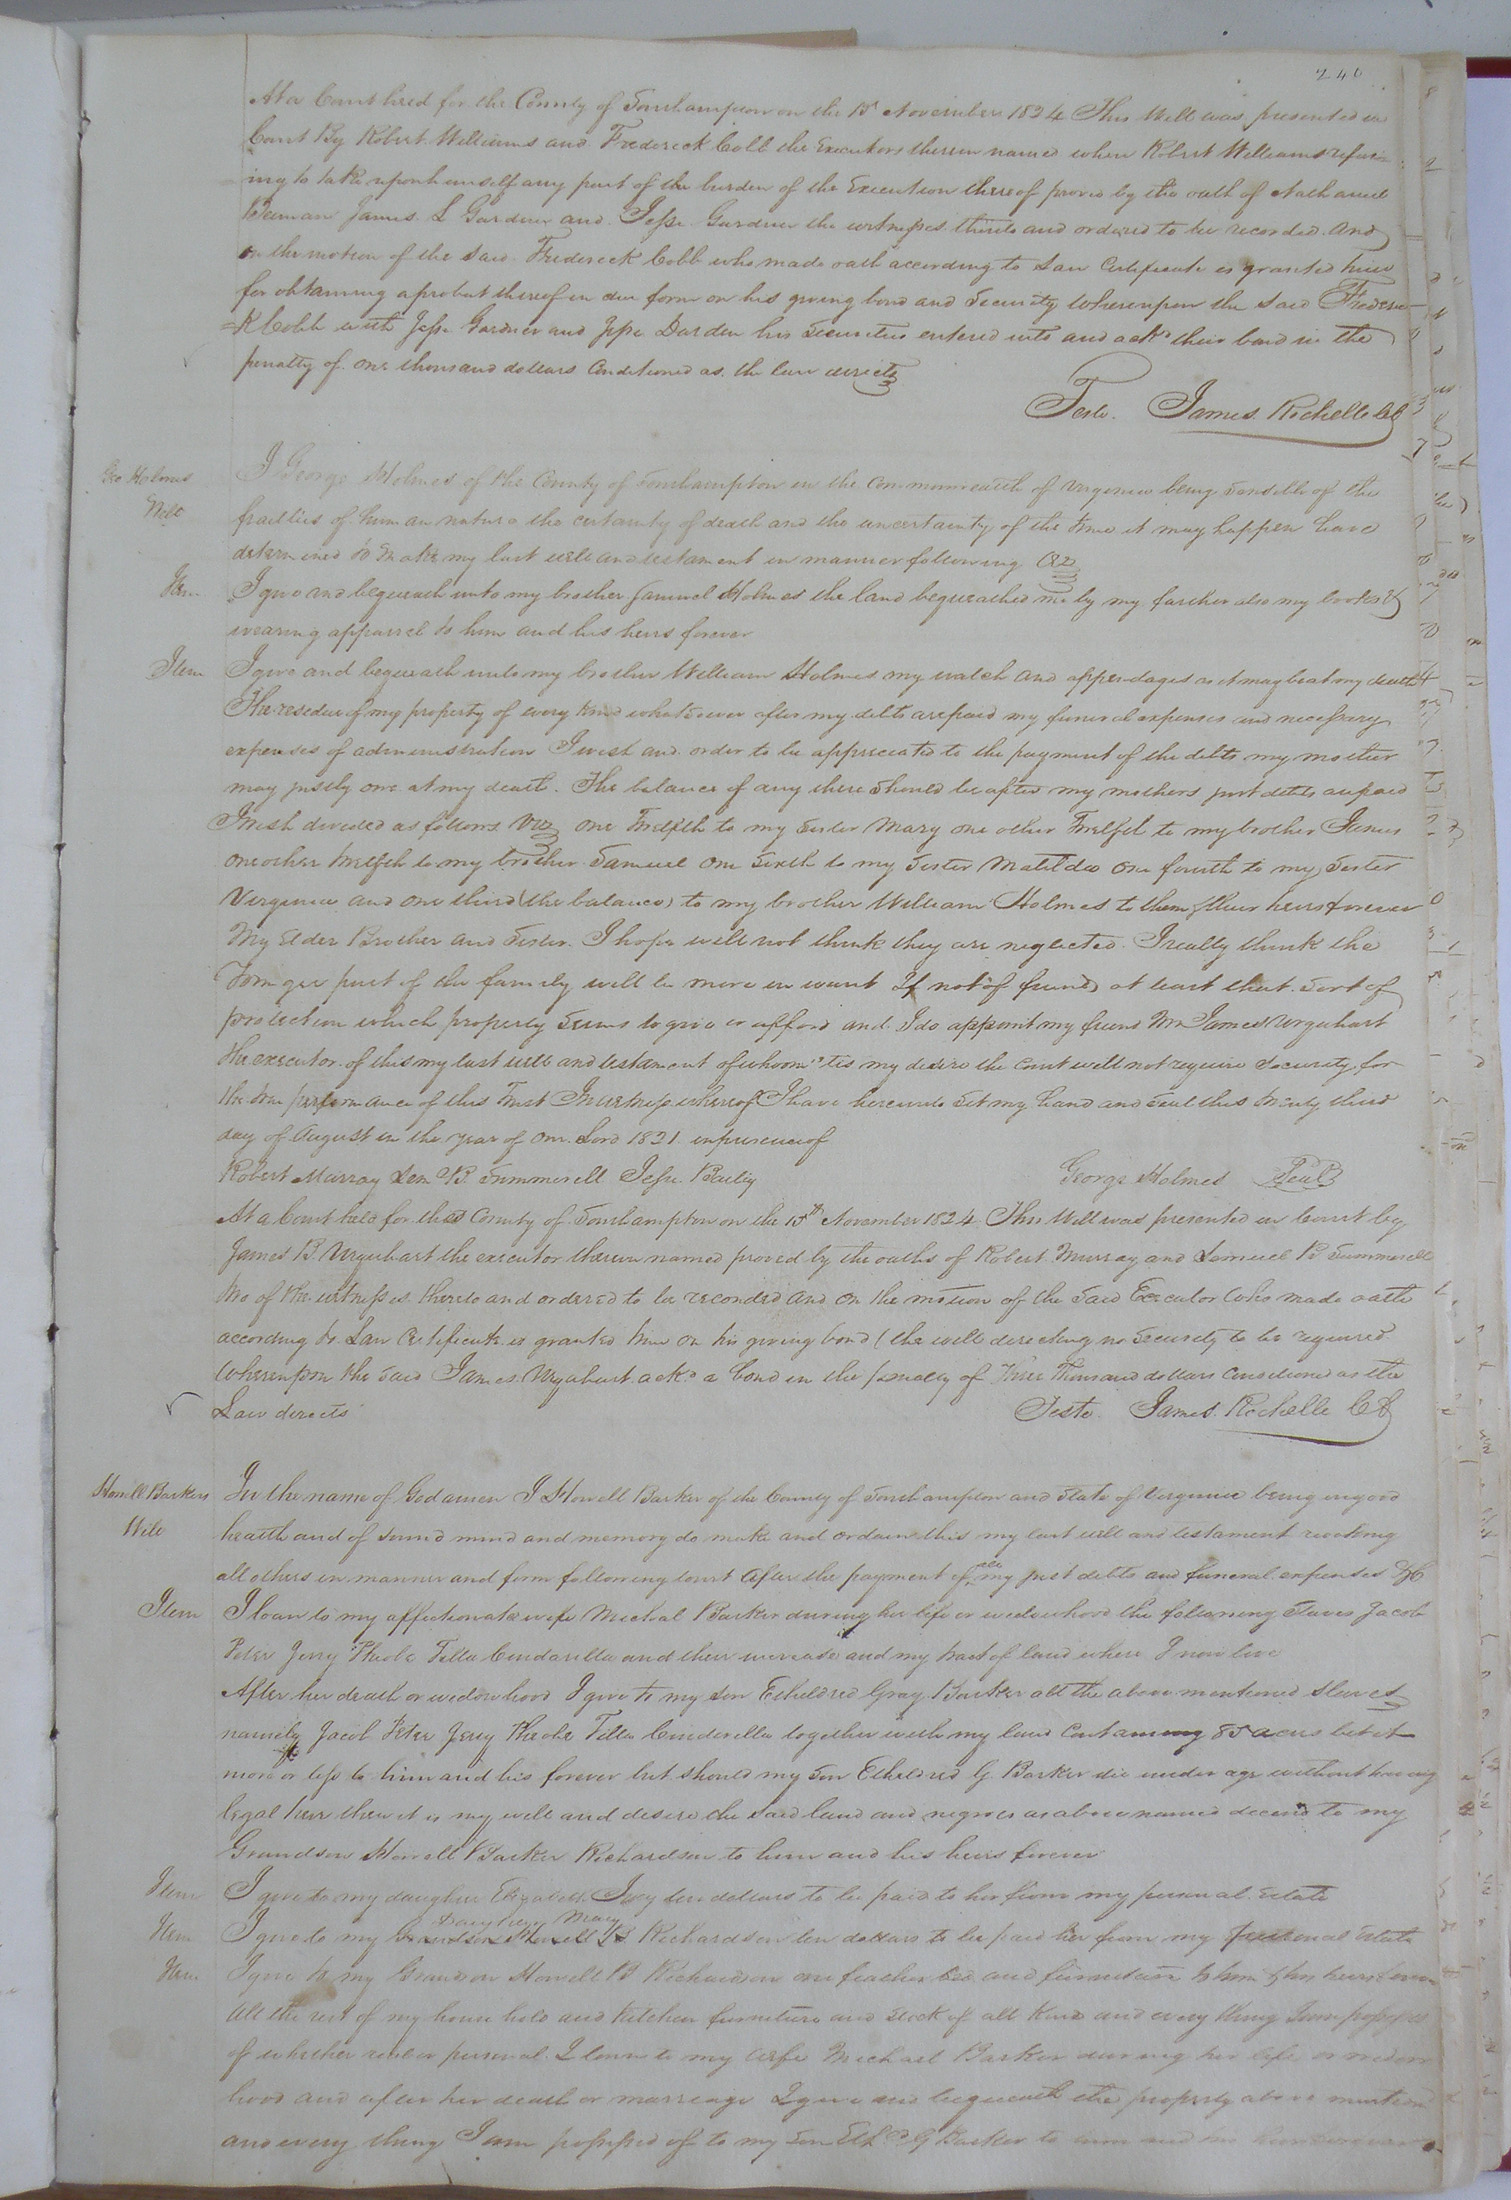 240
At a Court held for the County of Southampton on the 15th November 1824 This Will was presented in
Court By Robert Williams and Frederick Cobb the Executors therein named when Robert Williams refus
ing to take upon himself any part of the burden of the Execution thereof proved by the oath of Nathaniel
Beeman James L Gardner and Jesse Gardner the witnesses thereto and ordered to be recorded And
on the motion of the said Frederick Cobb who made oath according to Law Certificate is granted him
for obtaining a probat thereof in due form on his giving bond and Security Whereupon the said Frederic
=K Cobb with Jesse Gardner and Jesse Darden his Securities entered into and ackd their bond in the
penalty of one thousand dollars Conditioned as the law directs
Teste. James Rochelle CC
Geo Holmes
Will
I George Holmes of the County of Southampton in the Commonwealth of Virginia being sensible of the
frailties of human nature the certainty of death and the uncertainty of the time it may happen have
determined to make my last will and testament in manner following Viz
Item I give and bequeath unto my brother Samuel Holmes the land bequeathed me by my farther also my books &
wearing apparrel to him and his heirs forever
Item I give and bequeath unto my brother William Holmes my watch and appendages as it may be at my death
The residue of my property of every kind whatsoever after my debts are paid my funeral expenses and necessary
expenses of administration I wish and order to be appreciated to the payment of the debts my mother
may justly owe at my death. The balance if any there Should be after my mothers just debts are paid
I wish divided as follows Viz one Twelfth to my sister Mary one other Twelfth to my brother James
one other twelfth to my brother Samuel one sixth to my Sister Matilda one fourth to my Sister
Virginia and one third (the balance) to my brother William Holmes to them & their heirs forever
My Elder Brother and Sister. I hope will not think they are neglected. I really think the
Younger part of the family will be more in want If not of friends at least that sort of
protection which property seems to give or afford and I do appoint my friend Mr James Urquhart
the executor of this my last will and testament of whoom 'tis my desire the court will not require security for
the true performance of this Trust In witness whereof I have hereunto set my hand and seal this twenty third
day of August in the year of our Lord 1821 in presence of
Robert Murray Lem B. Summerell Jesse Bailey George Holmes Seal
At a Court held for the County of Southampton on the 15th November 1824 This Will was presented in Court by
James B. Urquhart the executor therein named proved by the oaths of Robert Murray and Lemuel B Summerell
two of the witnesses thereto and ordered to be recorded and on the motion of the said Executor who made oath
according to Law Certificate is granted him on his giving bond (the will directing no security to be required
Whereupon the said James Urquhart ackd a bond in the penalty of Three Thousand dollars Conditioned as the
Law directs Teste. James Rochelle CC
Howell Barkers
Will
In the name of God amen I Howell Barker of the County of Southampton and State of Virginia being in good
health and of sound mind and memory do make and ordain this my last will and testament revoking
all others in manner and form following to wit After the payment of all my just debts and funeral expenses &C
Item I loan to my affectionate wife Michal Barker during her life or widowhood the following Slaves Jacob
Peter Jerry Pheobe Tilla Cindarilla and their increase and my tract of land where I now live
After her death or widowhood I give to my son Etheldred Gray Barker all the above mentioned slaves
namely Jacob Peter Jerry Pheobe Tilla Cinderella together with my land Containing 85 acres be it
more or less to him and his forever but should my Son Etheldred G. Barker die under age without having
legal heir then it is my will and desire the said land and negroes as above named decend to my
Grandson Howell Barker Richardson to him and his heirs forever
Item I give to my daughter Elizabeth Ivy ten dollars to be paid to her from my personal Estate
Item I give to my Grand daughter Mary Richardson ten dollars to be paid her from my personal Estate
Item I give to my Grandson Howell B Richardson one feather bed and furniture to him & his heirs forever
All the rest of my house hold and kitchen furniture and stock of all kind and every thing I am possessed
of whether real or personal I loan to my wife Michael Barker during her life or widow
hood and after her death or marriage I give and bequeath the property above mentiond
and every thing I am possessed of to my Son Ethd G Barker to him and his heirs forever